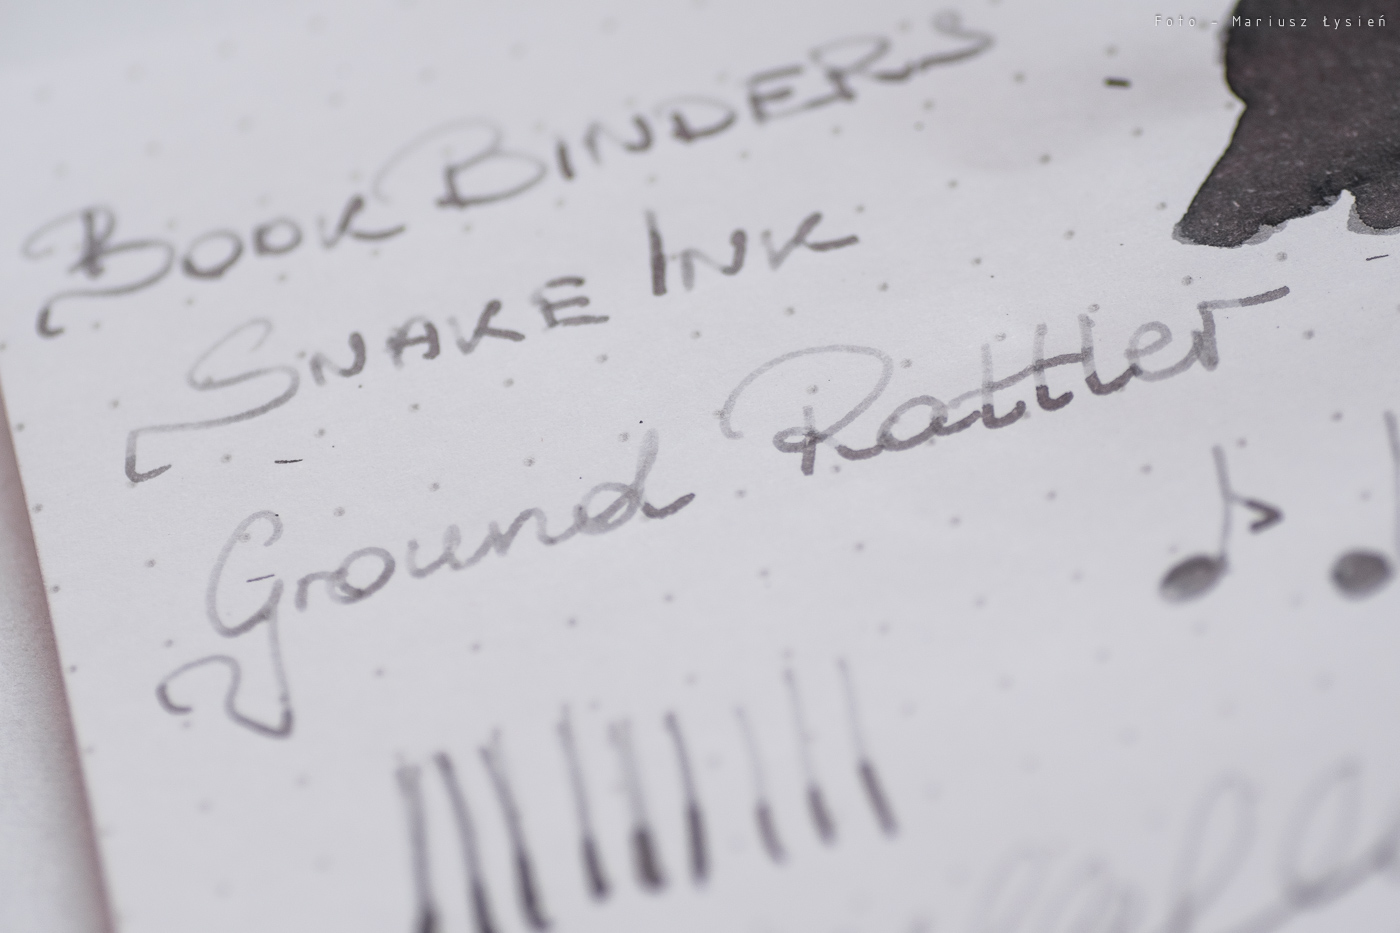 Foto - Mariusz Łysień
Book Binders
Snake Ink
Ground Rattler